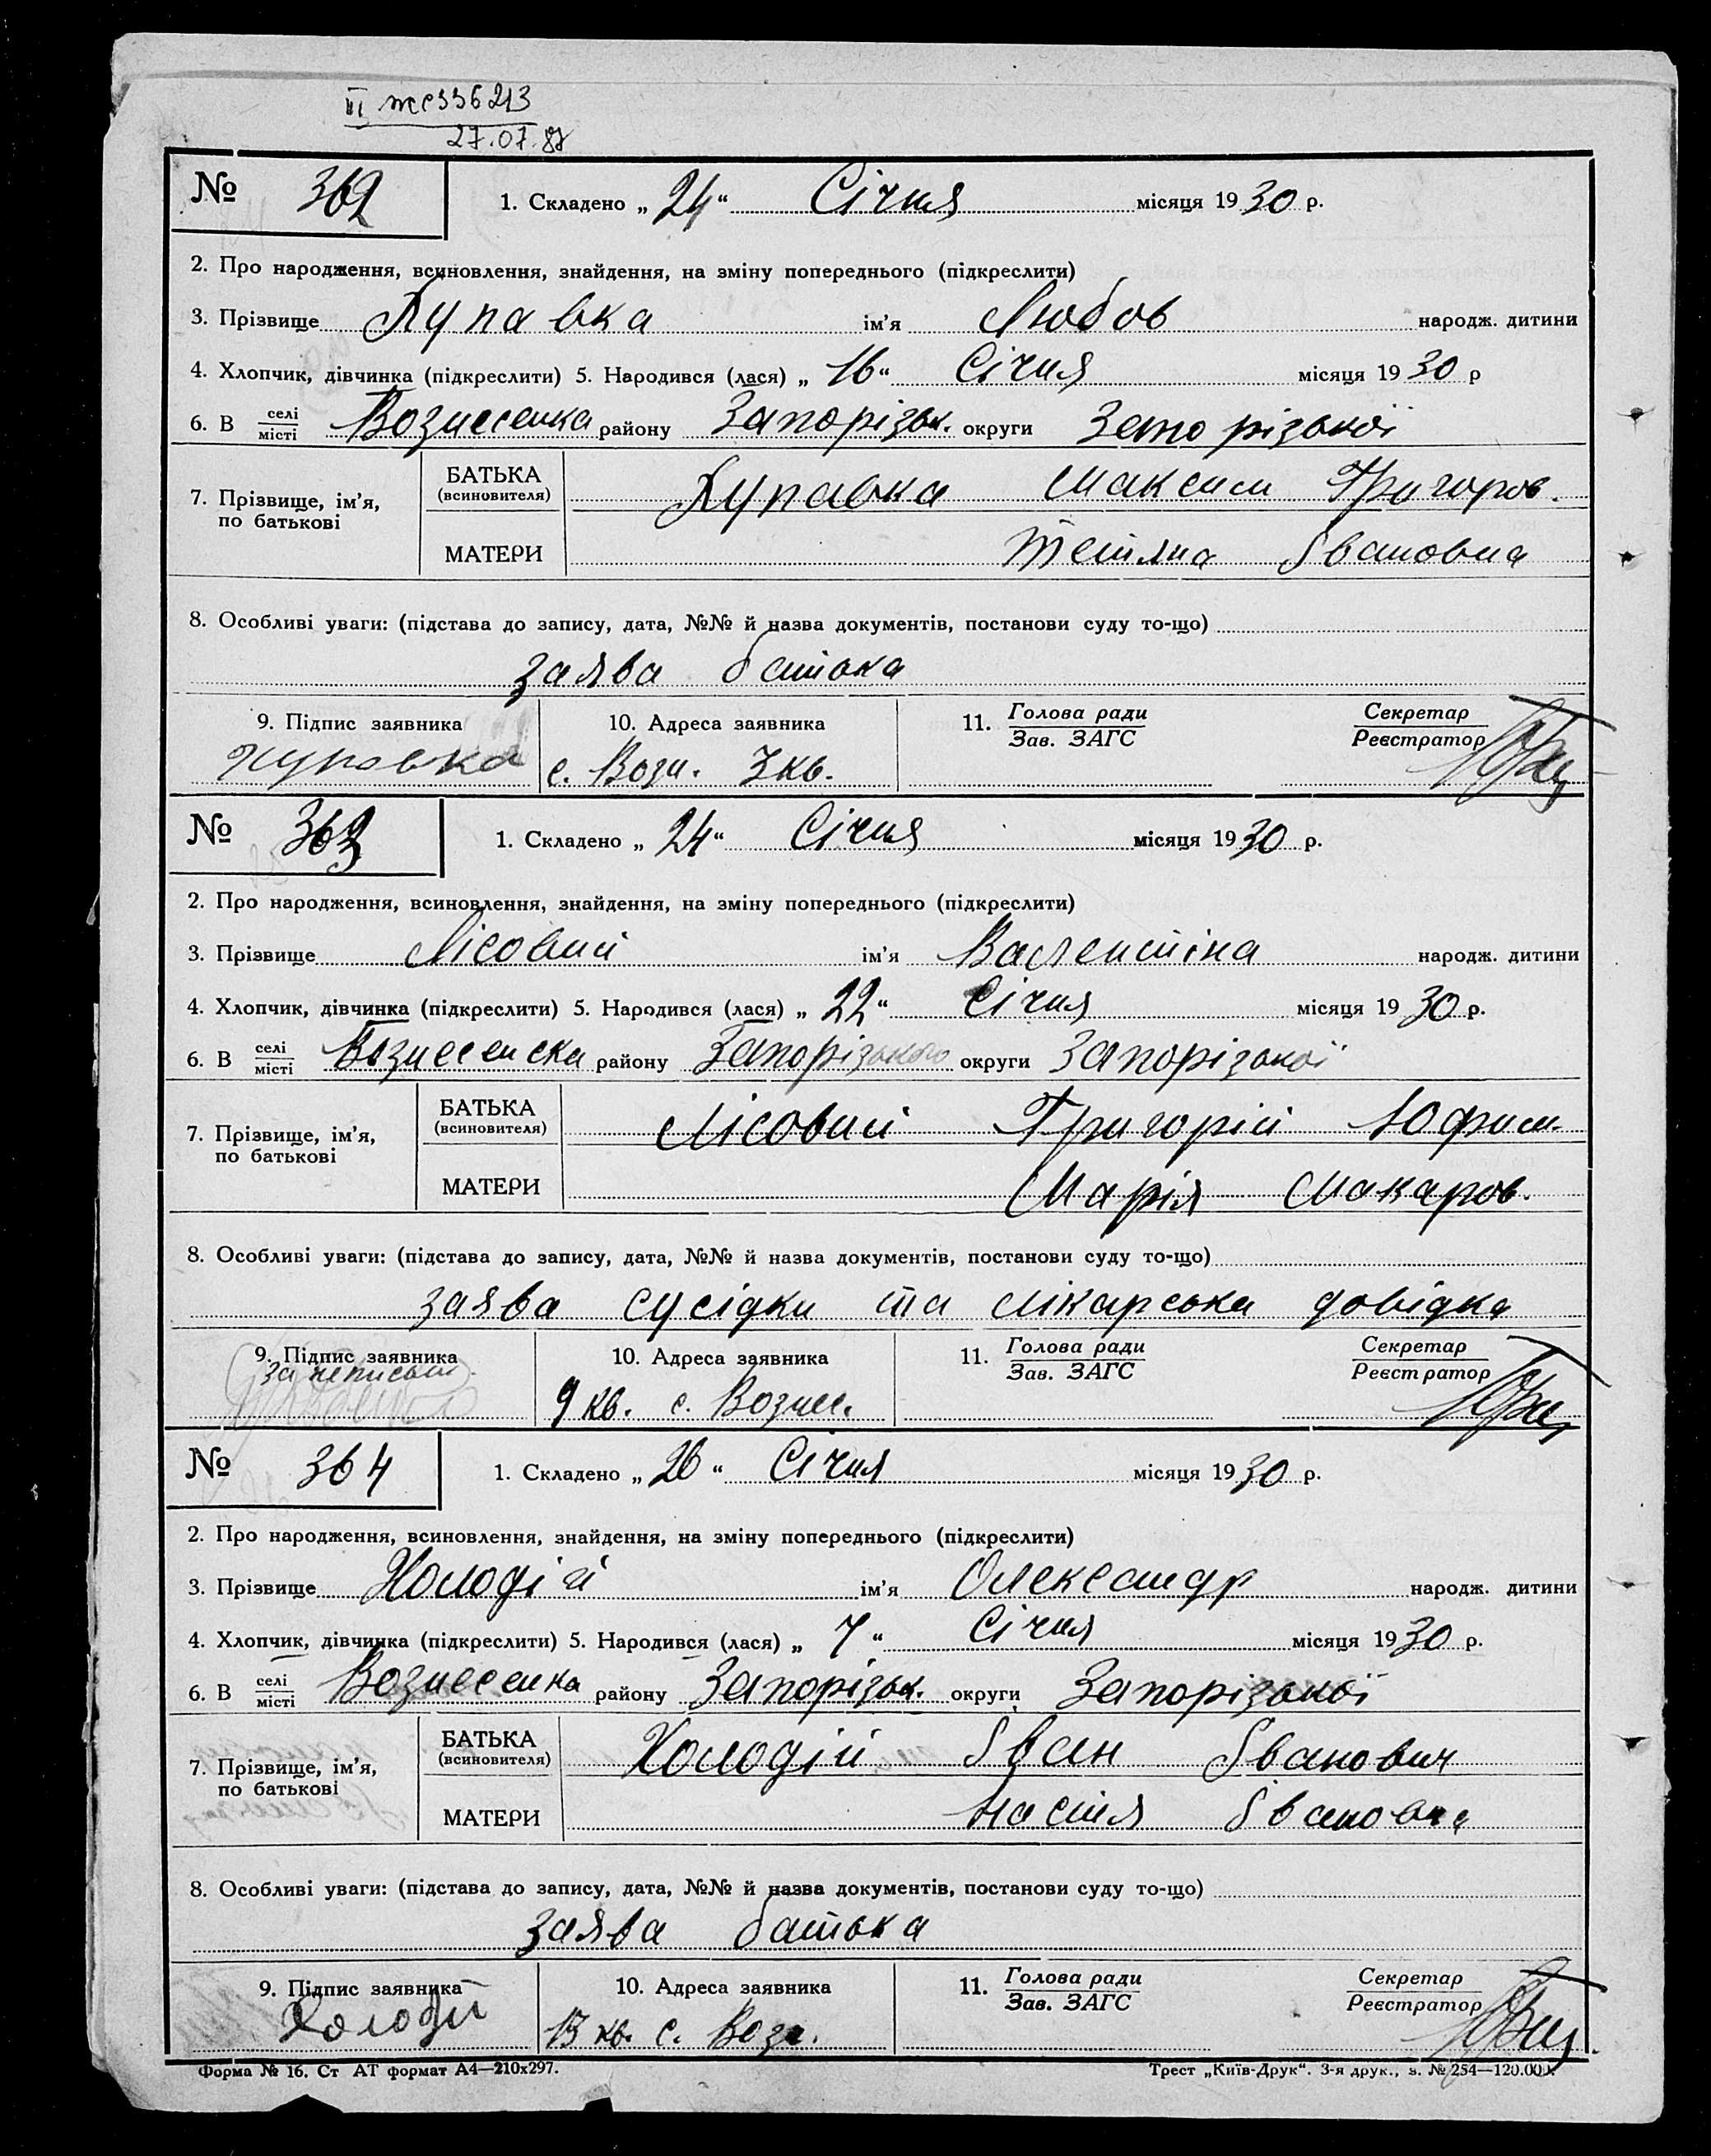 III ЖС 336213
27.07.87
№ 362 1. Складено „24“ Січня місяця 1930 р.
2. Про народження, всиновлення, знайдення, на зміну попереднього (підкреслити)
3. Прізвище Купавка ім'я Любов народж. дитини
4. Хлопчик, дівчинка (підкреслити) 5. Народився (лася) „16“ Січня місяця 1930 р
6. В селі місті Вознесенка району Запорізьк. округи Запорізької
7. Прізвище, ім'я, по батькові
БАТЬКА (всиновителя) Купавка Максим Григоров.
МАТЕРИ Тетяна Івановна
8. Особливі уваги: (підстава до запису, дата, №№ й назва документів, постанови суду то-що)
заява батька
9. Підпис заявника 10. Адреса заявника 11. Голова ради Зав. ЗАГС Секретар Реєстратор
с. Возн. 3 кв.
№ 363 1. Складено „24“ Січня місяця 1930 р.
2. Про народження, всиновлення, знайдення, на зміну попереднього (підкреслити)
3. Прізвище Лісовий ім'я Валентіна народж. дитини
4. Хлопчик, дівчинка (підкреслити) 5. Народився (лася) „22“ Січня місяця 1930 р.
6. В селі місті Вознесенска району Запорізького округи Запорізької
7. Прізвище, ім'я, по батькові
БАТЬКА (всиновителя) Лісовий Григорій Юфим.
МАТЕРИ Марія Макаров.
8. Особливі уваги: (підстава до запису, дата, №№ й назва документів, постанови суду то-що)
заява сусідки та лікарська довідка
9. Підпис заявника 10. Адреса заявника 11. Голова ради Зав. ЗАГС Секретар Реєстратор
за неписьм.
9 кв. с. Вознес.
№ 364 1. Складено „26“ Січня місяця 1930 р.
2. Про народження, всиновлення, знайдення, на зміну попереднього (підкреслити)
3. Прізвище Холодій ім'я Олександр народж. дитини
4. Хлопчик, дівчинка (підкреслити) 5. Народився (лася) „7“ Січня місяця 1930 р.
6. В селі місті Вознесенка району Запорізьк. округи Запорізької
7. Прізвище, ім'я, по батькові
БАТЬКА (всиновителя) Холодій Іван Іванович
МАТЕРИ Настя Івановна
8. Особливі уваги: (підстава до запису, дата, №№ й назва документів, постанови суду то-що)
заява батька
9. Підпис заявника 10. Адреса заявника 11. Голова ради Зав. ЗАГС Секретар Реєстратор
Холодій 13 кв. с. Возн.
Форма № 16. Ст АТ формат А4—210х297. Трест „Київ-Друк“. 3-я друк., з. № 254—120.000.